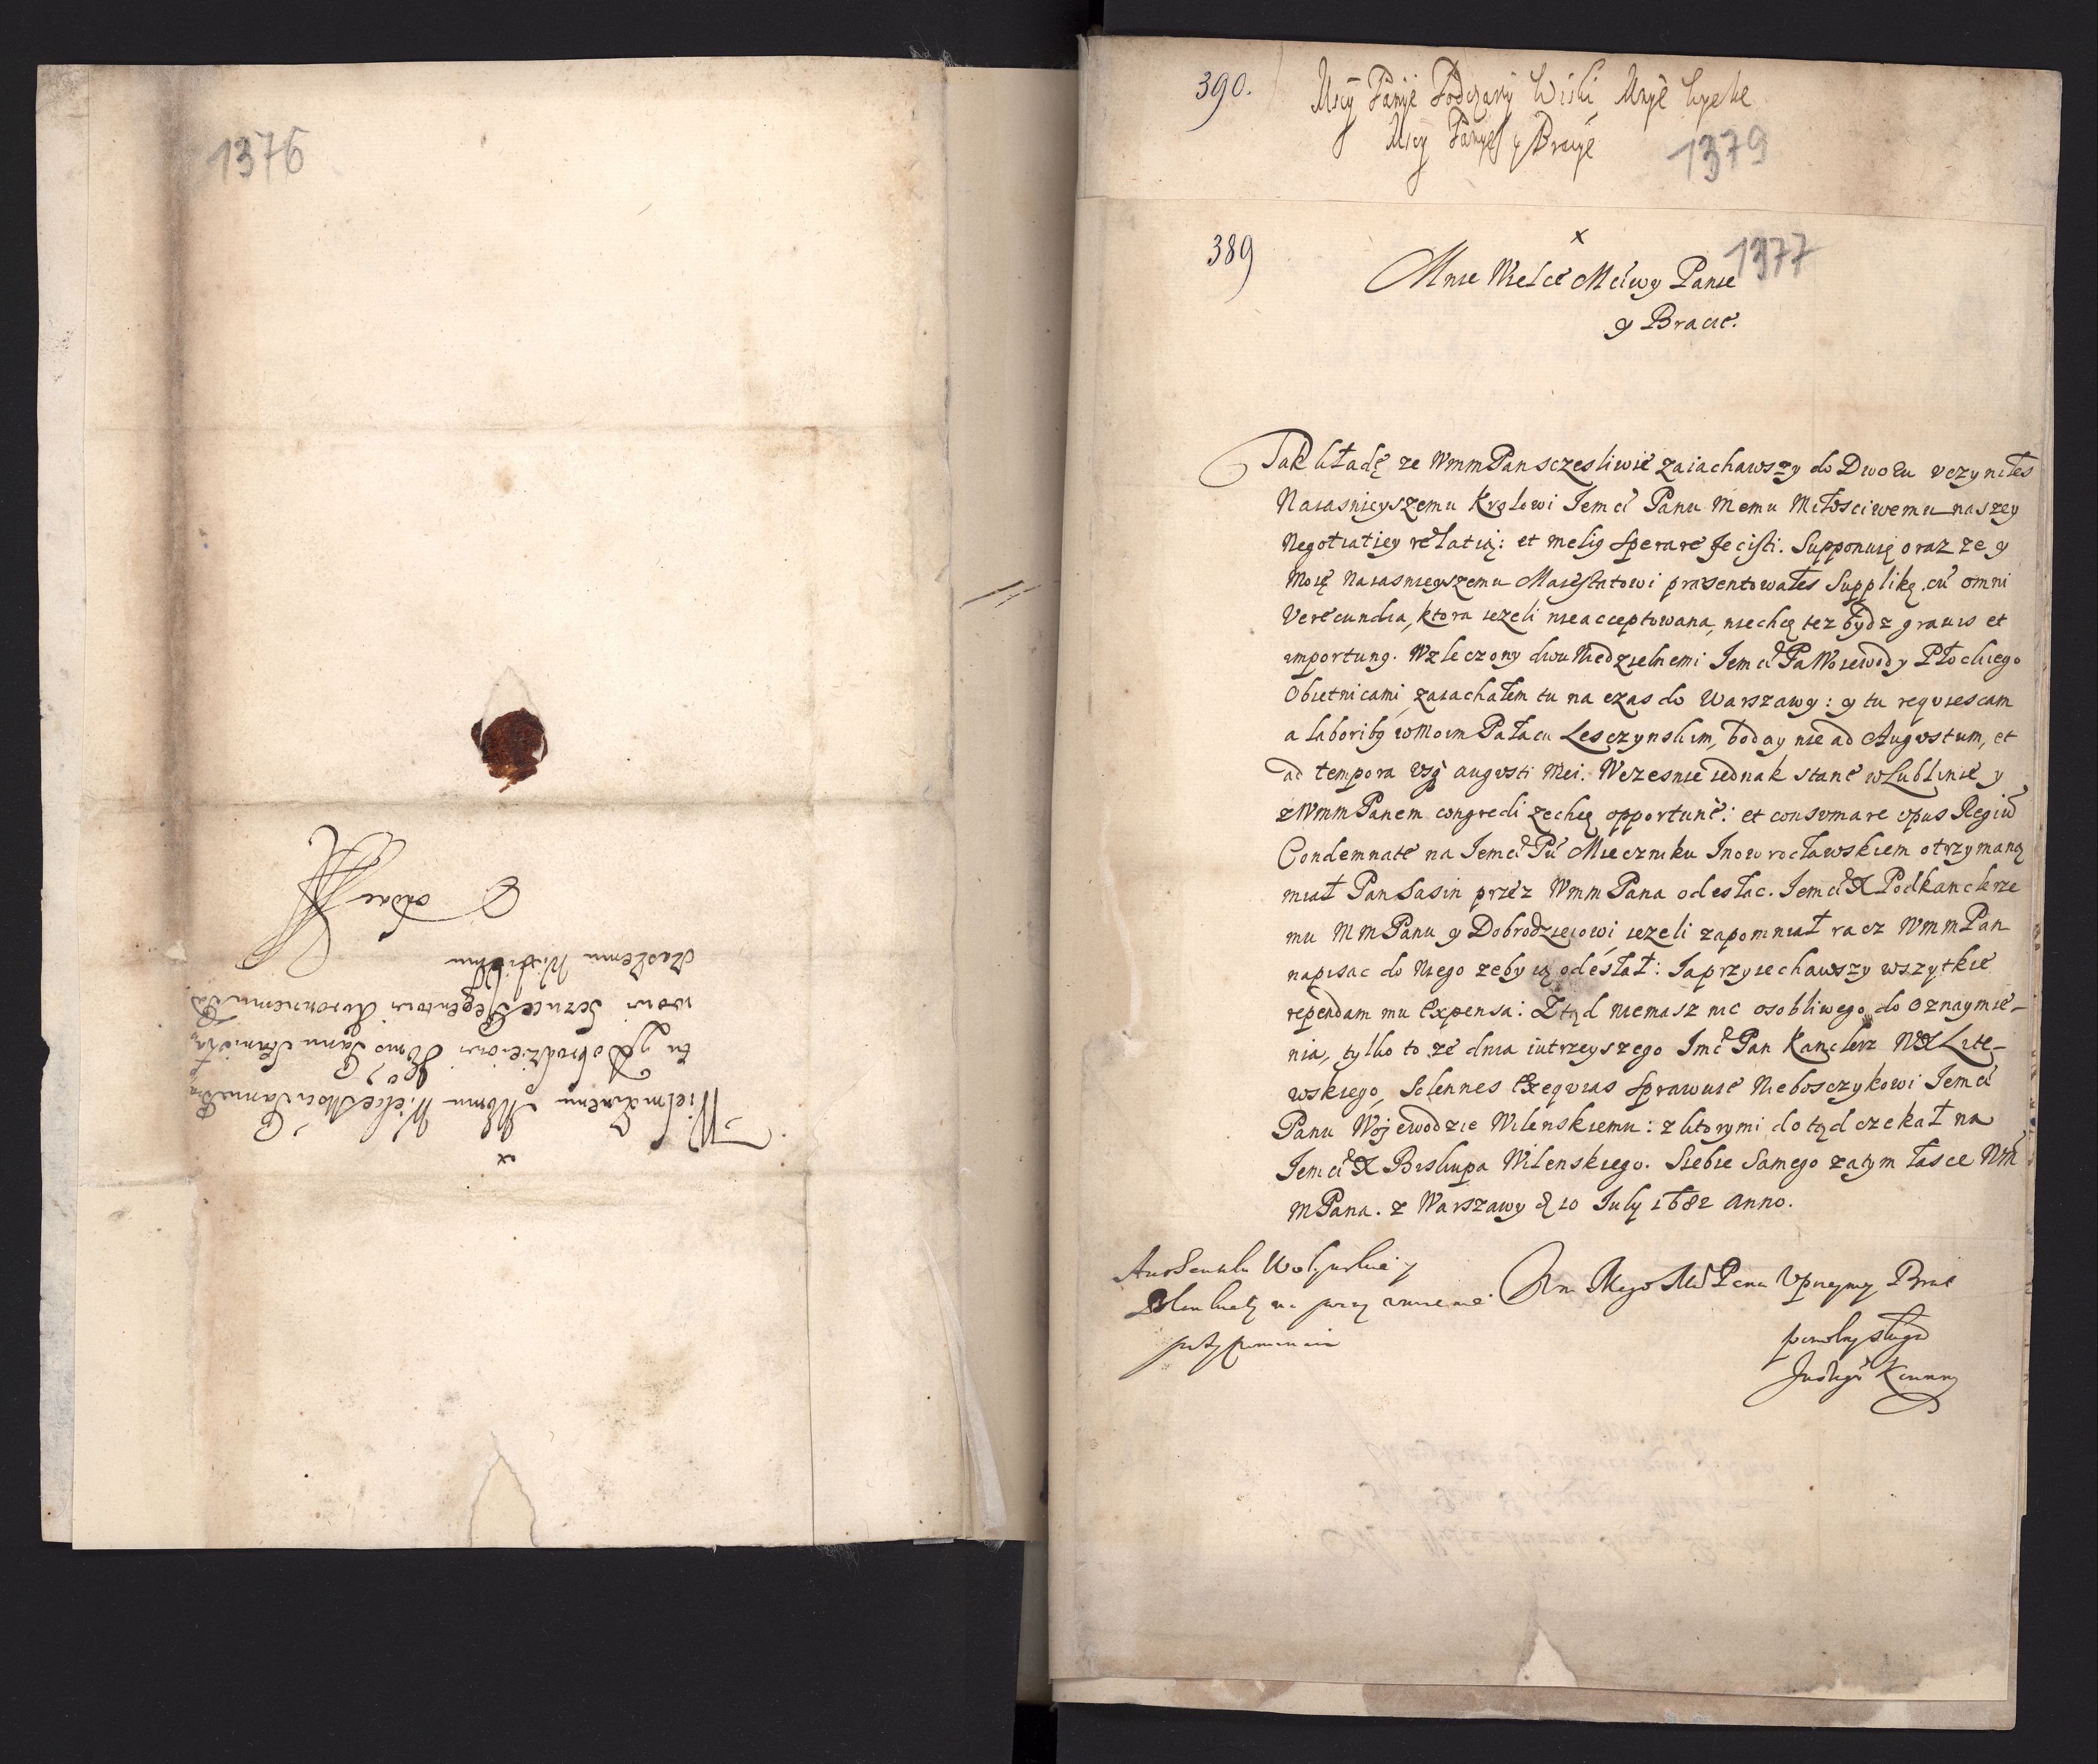 1376
Wielmożnemu Memu Wielce Mośći Panu Bra
tu y Dobrodzieiowi Jego Mo Panu Stanisła
wowi Szczuce Regentowi Koronnemu Pod
czaszemu Wiskiemu
oddac
390.
Mscy Panye Podczaszy Wiski Mnye Wyelce
Mscy Panye y Bracye
1379
389
x
1377
Mnie Wielce Mciwy Panie
y Bracie.
Tak kładę ze WmmPan sczesliwie zaiachawszy do Dworu vczyniłes
Naiasnieyszemu Krolowi Jemci Panu Memu Miłosciwemu naszey
Negotiatiey relatią: et melig sperare fecisti. Supponuię oraz ze y
Moię Naiasnieyszemu Maiestatowi præsentowałes Supplikę cu omni
Verecundia, ktora iezeli nieacceptowana, niechcę tez bydz grauis et
importung. Wzleczony dwu Niedzielnemi Jemci Pa Woiewody Płockiego
Obietnicami zaiachałem tu na czas do Warszawy: y tu reqviescam
a laboribg w Moim Pałacu Lesczynskim, boday nie ad Augvstum, et
ad tempora vsq augvsti Mei. Wczesnie iednak stane w Lublinie y
z Wmm Panem congredi zechcę opportunè: et consvmare opus Regiu
Condemnate na Jemci Pu Mieczniku Inowrocławskiem otrzymaną
miał Pan Sasin przez Wmm Pana odesłac. Jemci X Podkanclerze
mu MmPanu y Dobrodzieiowi iezeli zapomniał racz WmmPan
napisac do Niego zeby ią odesłał: Ja przyiechawszy wszytkie
rependam mu Expensa: Ztąd niemasz nic osobliwego do Oznaymie-
nia, tylko to ze dnia iutrzeyszego Imc Pan Kanclerz WX Lite-
wskiego, Solennes Exeqvias sprawuie Nieboszczykowi Jemci
Panu Wojewodzie Wilenskiemu: z ktorymi dotąd czekał na
Jemci X Biskupa Wilenskiego. Siebie Samego zatym łasce Wm
mPana. z Warszawy d 10 July 1682 Anno.
Wm Mego Mci Pana Vprzeymy Brat
powolny sługa